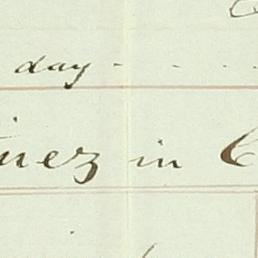 day - - - -
nez in C